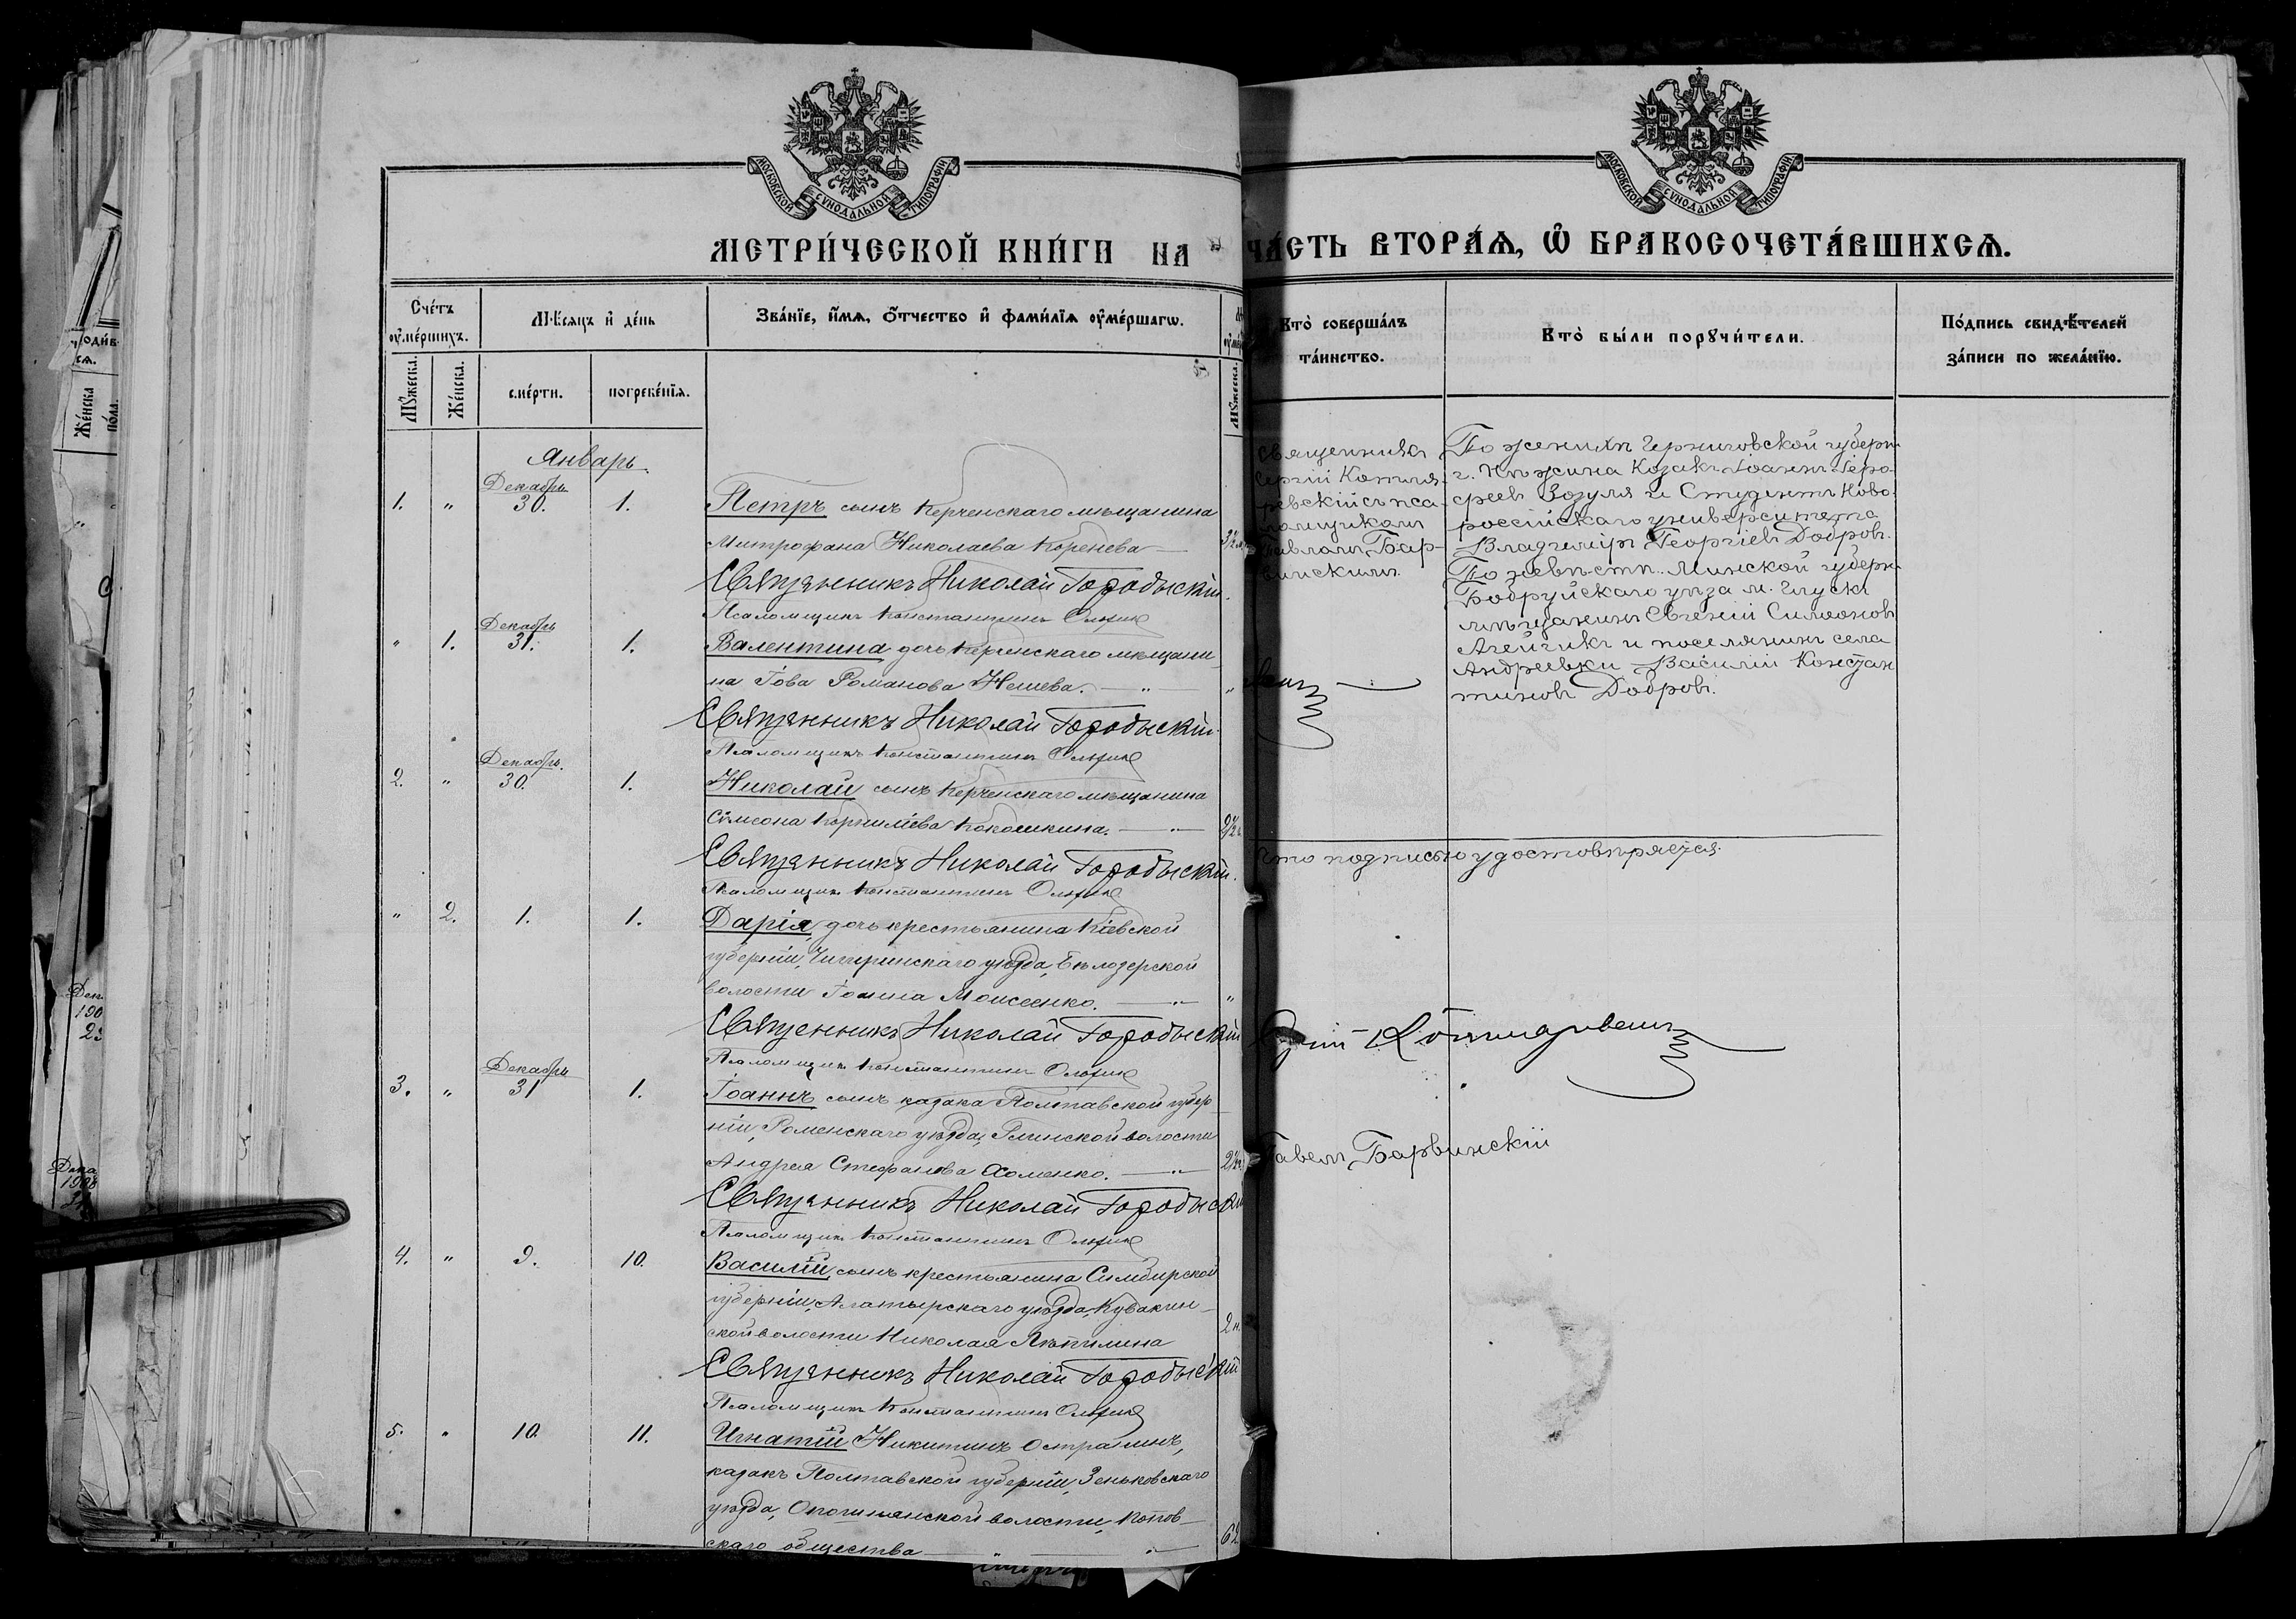 МОСКОВСКОЙ СУНОДАЛЬНОЙ ТИПОГРАФІИ
МЕТРИ́ЧЕСКОЙ КНИ́ГИ НА
Сче́тъ оу҆ме́ршихъ.
Мѣ́сяцъ и҆ де́нь
Зва́нїе, и҆́мя, ѻ҆́тчество и҆ фами́лїя оу҆ме́ршагѡ.
Мꙋ́жеска.
Же́нска.
сме́рти.
погребе́нїя.
Мꙋ́жеска.
Январь.
Декабрь
1. " 30. 1. Петръ сынъ Керченскаго мѣщанина
Митрофана Николаева Коренева
Священникъ Николай Городыскій.
Псаломщикъ Константинъ
Декабрь
" 1. 31. 1. Валентина дочь Керченскаго мѣщани-
на Іова Романова Нешева. — " —
Священникъ Николай Городыскій.
Псаломщикъ Константинъ
Декабрь.
2. " 30. 1. Николай сынъ Керченскаго мѣщанина
Сѵмеона Корниліева Кокошкина. — " —
Священникъ Николай Городыскій.
Псаломщикъ Константинъ
" 2. 1. 1. Дарія, дочь крестьянина Кіевской
губерніи, Чигиринскаго уѣзда, Бѣлозерской
волости Іоанна Моисеенко. — " —
Священникъ Николай Городыскій
Псаломщикъ Константинъ
Декабрь
3. " 31 1. Іоаннъ сынъ казака Полтавской губер-
ніи, Роменскаго уѣзда, Глинской волости
Андрея Стефанова Хоменко. — " —
Священникъ Николай Городыскій
Псаломщикъ Константинъ
4. " 9. 10. Василій, сынъ крестьянина Симбирской
губерніи, Алатырскаго уѣзда, Кувакин-
ской волости Николая 2 н.
Священникъ Николай Городыскій
Псаломщикъ Константинъ
5. " 10. 11. Игнатій Никитинъ
казакъ Полтавской губерніи, Зеньковскаго
уѣзда, Опошнянской волости,
скаго общества — " — 62
МОСКОВСКОЙ СУНОДАЛЬНОЙ ТИПОГРАФІИ
ЧА́СТЬ ВТОРА́Я, Ѡ҆ БРАКОСОЧЕТА́ВШИХСЯ.
Кто̀ соверша́лъ та́инство.
Кто̀ бы́ли порꙋчи́тели.
По́дпись свидѣ́телей за́писи по жела́нїю.
Священникъ
Сергій Котля-
ревскій съ пса-
ломщикомъ
Павломъ Бар-
винскимъ.
По женихѣ Черниговской губерн.
г. Нѣжина Козакъ Іоаннъ
Зозуля и Студентъ Ново-
россійскаго университета
Владиміръ Георгіевъ Добровъ.
По невѣстѣ. Минской губерн.
Бобруйскаго уѣзда м. Глуска
мѣщанинъ Евгеній Симеоновъ
Агейчикъ и поселянинъ села
Андреевки Василій Констан-
тиновъ Добровъ.
что подписью удостовѣряется.
Павелъ Барвинскій